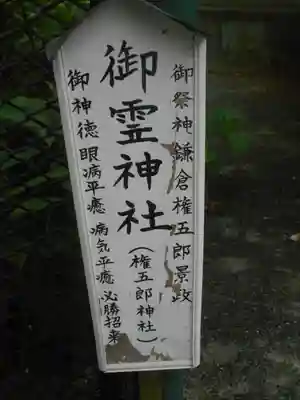 御祭神鎌倉権五郎景政
御霊神社
（権五郎神社）
御神徳 眼病平癒 病気平癒 必勝招来